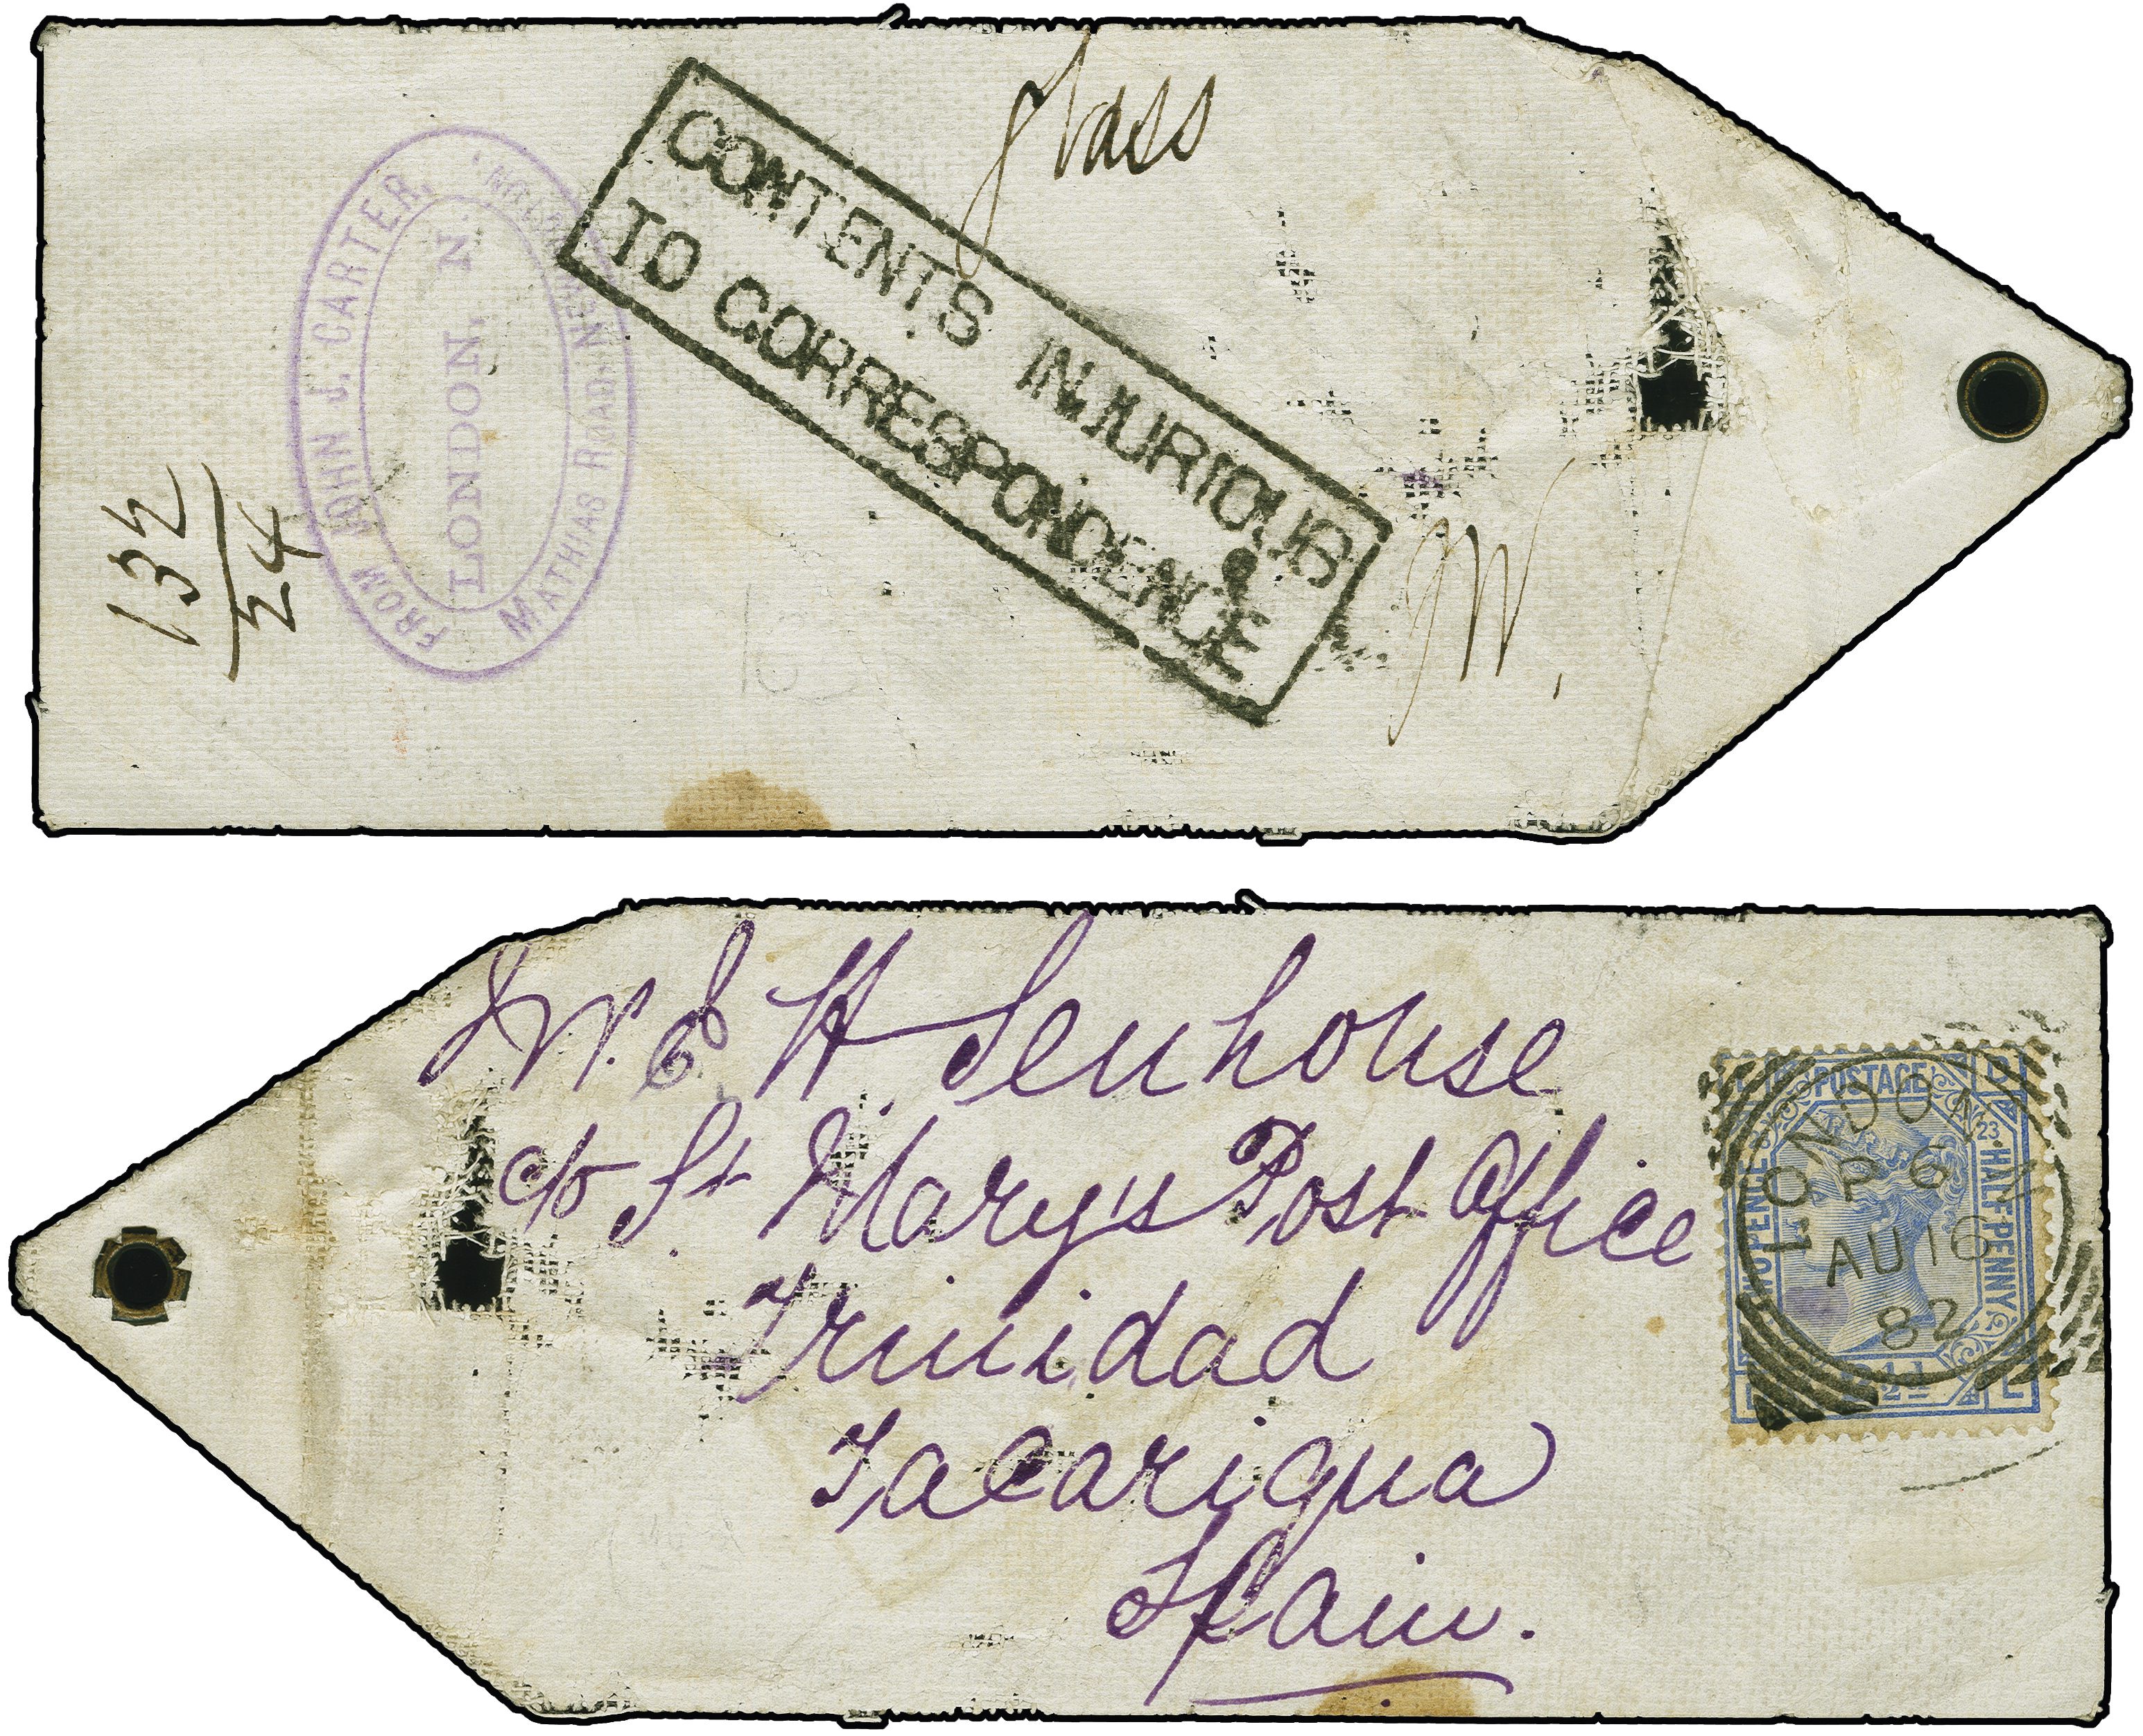 glass
CONTENTS INJURIOUS
TO CORRESPONDENCE
FROM JOHN J. CARTER,
LONDON, N.
MATHIAS ROAD,
132
24
M.
Mr. E H Senhouse
c/o St Mary's Post Office
Trinidad
Tacarigua
Spain.
POSTAGE
TWO PENCE
HALF PENNY
23
L
LONDON. N
6P
AU 16
82